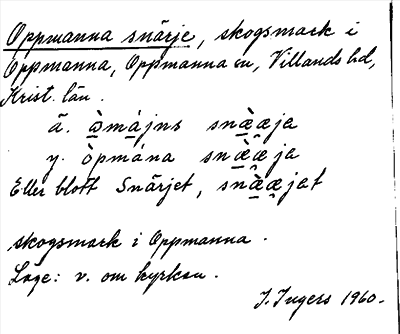 Oppmanna snärje, skogsmark i
Oppmanna, Oppmanna sn, Villands hd,
Krist. län.
ä. òmájns snæ̀æja
y. òpmána snæ̀æja
Eller blott Snärjet, snæ̀æjat
skogsmark i Oppmanna.
Läge: v. om kyrkan.
I. Ingers 1960.